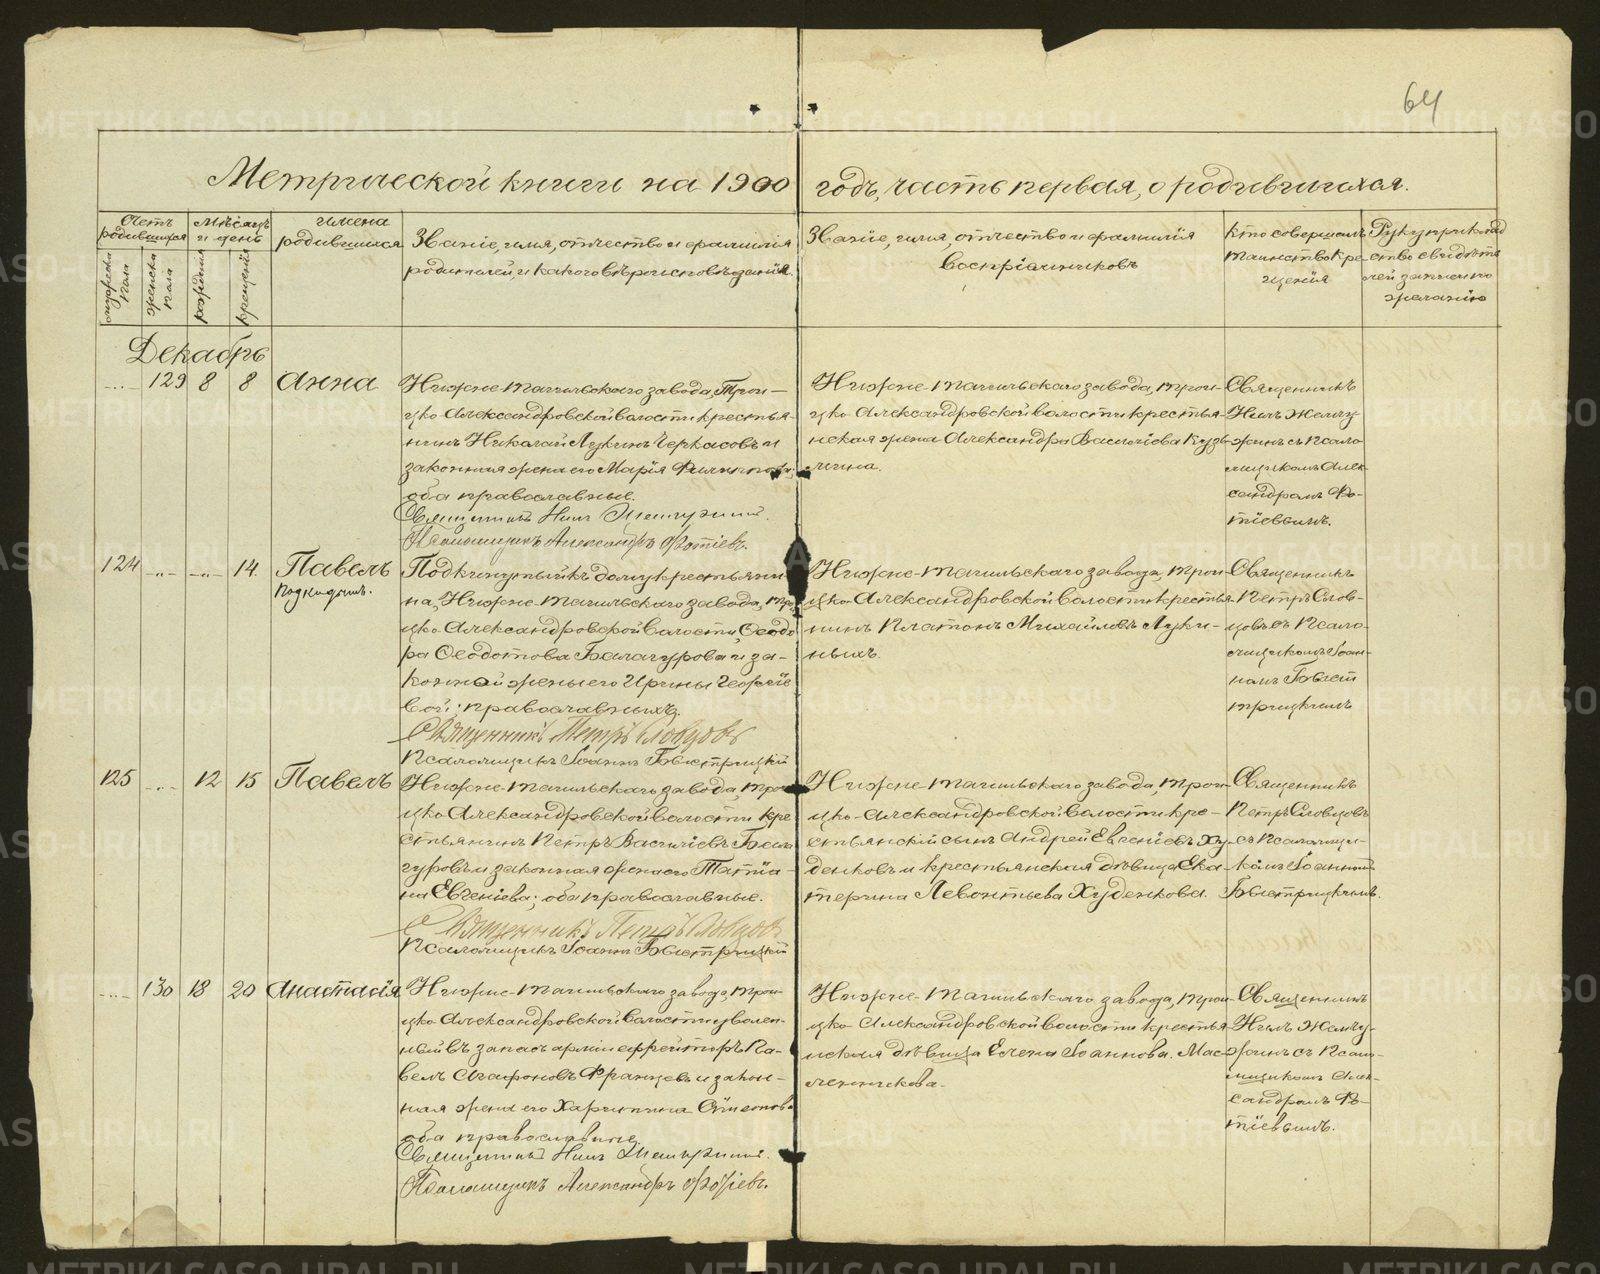 64
Метрической книги на 1900 годъ, часть первая, о родившихся.
Счетъ родившихся
мужеска пола
женска пола
Мѣсяцъ и день
рожденія
крещенія
Имена родившихся
Званіе, имя, отчество и фамилія
родителей, и какого вѣроисповѣданія.
Званіе, имя, отчество и фамилія
воспріемниковъ
Кто совершалъ
таинство кре-
щенія
Рукоприклад
ство свидѣте
лей записи по
желанію
Декабрь
129 8 8 Анна
Нижне-Тагильскаго завода, Трои-
цко-Александровской волости крестья-
нинъ Николай Лукинъ Черкасовъ и
законная жена его Марія Филиппова;
оба православные.
Священникъ Нилъ Жемчужинъ.
Псаломщикъ Александръ Фотіевъ.
Нижне-Тагильскаго завода, Трои-
цко-Александровской волости крестья-
нская жена Александра Васильева Кузь
мина.
Священникъ
Нилъ Жемчу-
жинъ съ псало
мщикомъ Алек
сандромъ Фо-
тіевымъ.
124 14. Павелъ
подкидышъ.
Подкинутый къ дому крестьяни
на, Нижне-Тагильскаго завода, Тро
цко-Александровской волости, Ѳеодо
ра Ѳеодотова Балагурова и за-
конной жены его Ирины Георгіе
вой; православныхъ.
Священникъ Петръ Словцовъ
Псаломщикъ Іоаннъ Быстрицкій
Нижне-Тагильскаго завода, Трои-
цко-Александровской волости крестья-
нинъ Платонъ Михайловъ Луки-
ныхъ.
Священникъ
Петръ Слов-
цовъ съ псало-
мщикомъ Іоан-
номъ Быст
рицкимъ
125 12 15 Павелъ
Нижне-Тагильскаго завода, Трои
цко-Александровской волости кре
стьянинъ Петръ Васильевъ Бала
гуровъ и законная жена его Татіа-
на Евгеніева; оба православные.
Священникъ Петръ Словцовъ
Псаломщикъ Іоаннъ Быстрицкій
Нижне-Тагильскаго завода, Трои-
цко-Александровской волости кре-
стьянскій сынъ Андрей Евгеніевъ Ху-
денковъ и крестьянская дѣвица Ека-
терина Левонтьева Худенкова.
Священникъ
Петръ Словцовъ
съ псаломщи-
комъ Іоанномъ
Быстрицкимъ.
130 18 20 Анастасія
Нижне-Тагильскаго завода, Трои-
цко-Александровской волости уволен-
ный въ запасъ арміи ефрейторъ Па-
велъ Агафоновъ Францевъ и закон-
ная жена его Харитина Симеонова
оба православные.
Священникъ Нилъ Жемчужинъ.
Псаломщикъ Александръ Фотіевъ.
Нижне-Тагильскаго завода, Трои-
цко-Александровской волости крестья-
нская дѣвица Елена Іоаннова Мас-
ленникова.
Священникъ
Нилъ Жемчу-
жинъ съ псало-
мщикомъ Алек-
сандромъ Фо-
тіевымъ.
METRIKI.GASO-URAL.RU